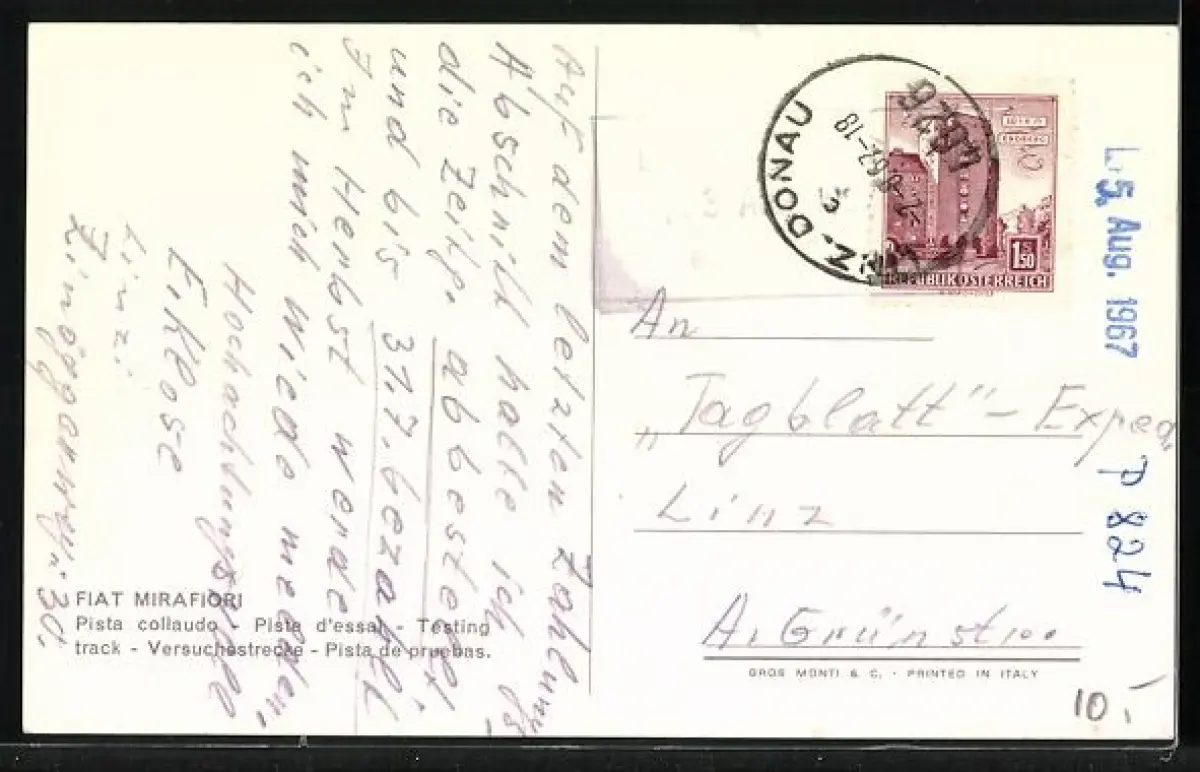 Auf dem letzten Zahlungs,
Abschnitt habe ich
die Zeitg. abbestellt
und bis 31.7. bezahlt.
Im Herbst werde
ich mich wieder melden,
Hochachtungsvoll
Linz;
FIAT MIRAFIORI
Pista collaudo - Pista d'essai - Testing
track - Versuchsstrecke - Pista de pruebas.
Z. DONAU
1 S 50
REPUBLIK ÖSTERREICH
5. Aug. 1967
An
„Tagblatt"- Exped.
Linz
A. Grünstr..
P 824
GROS MONTI & C. · PRINTED IN ITALY
10.-